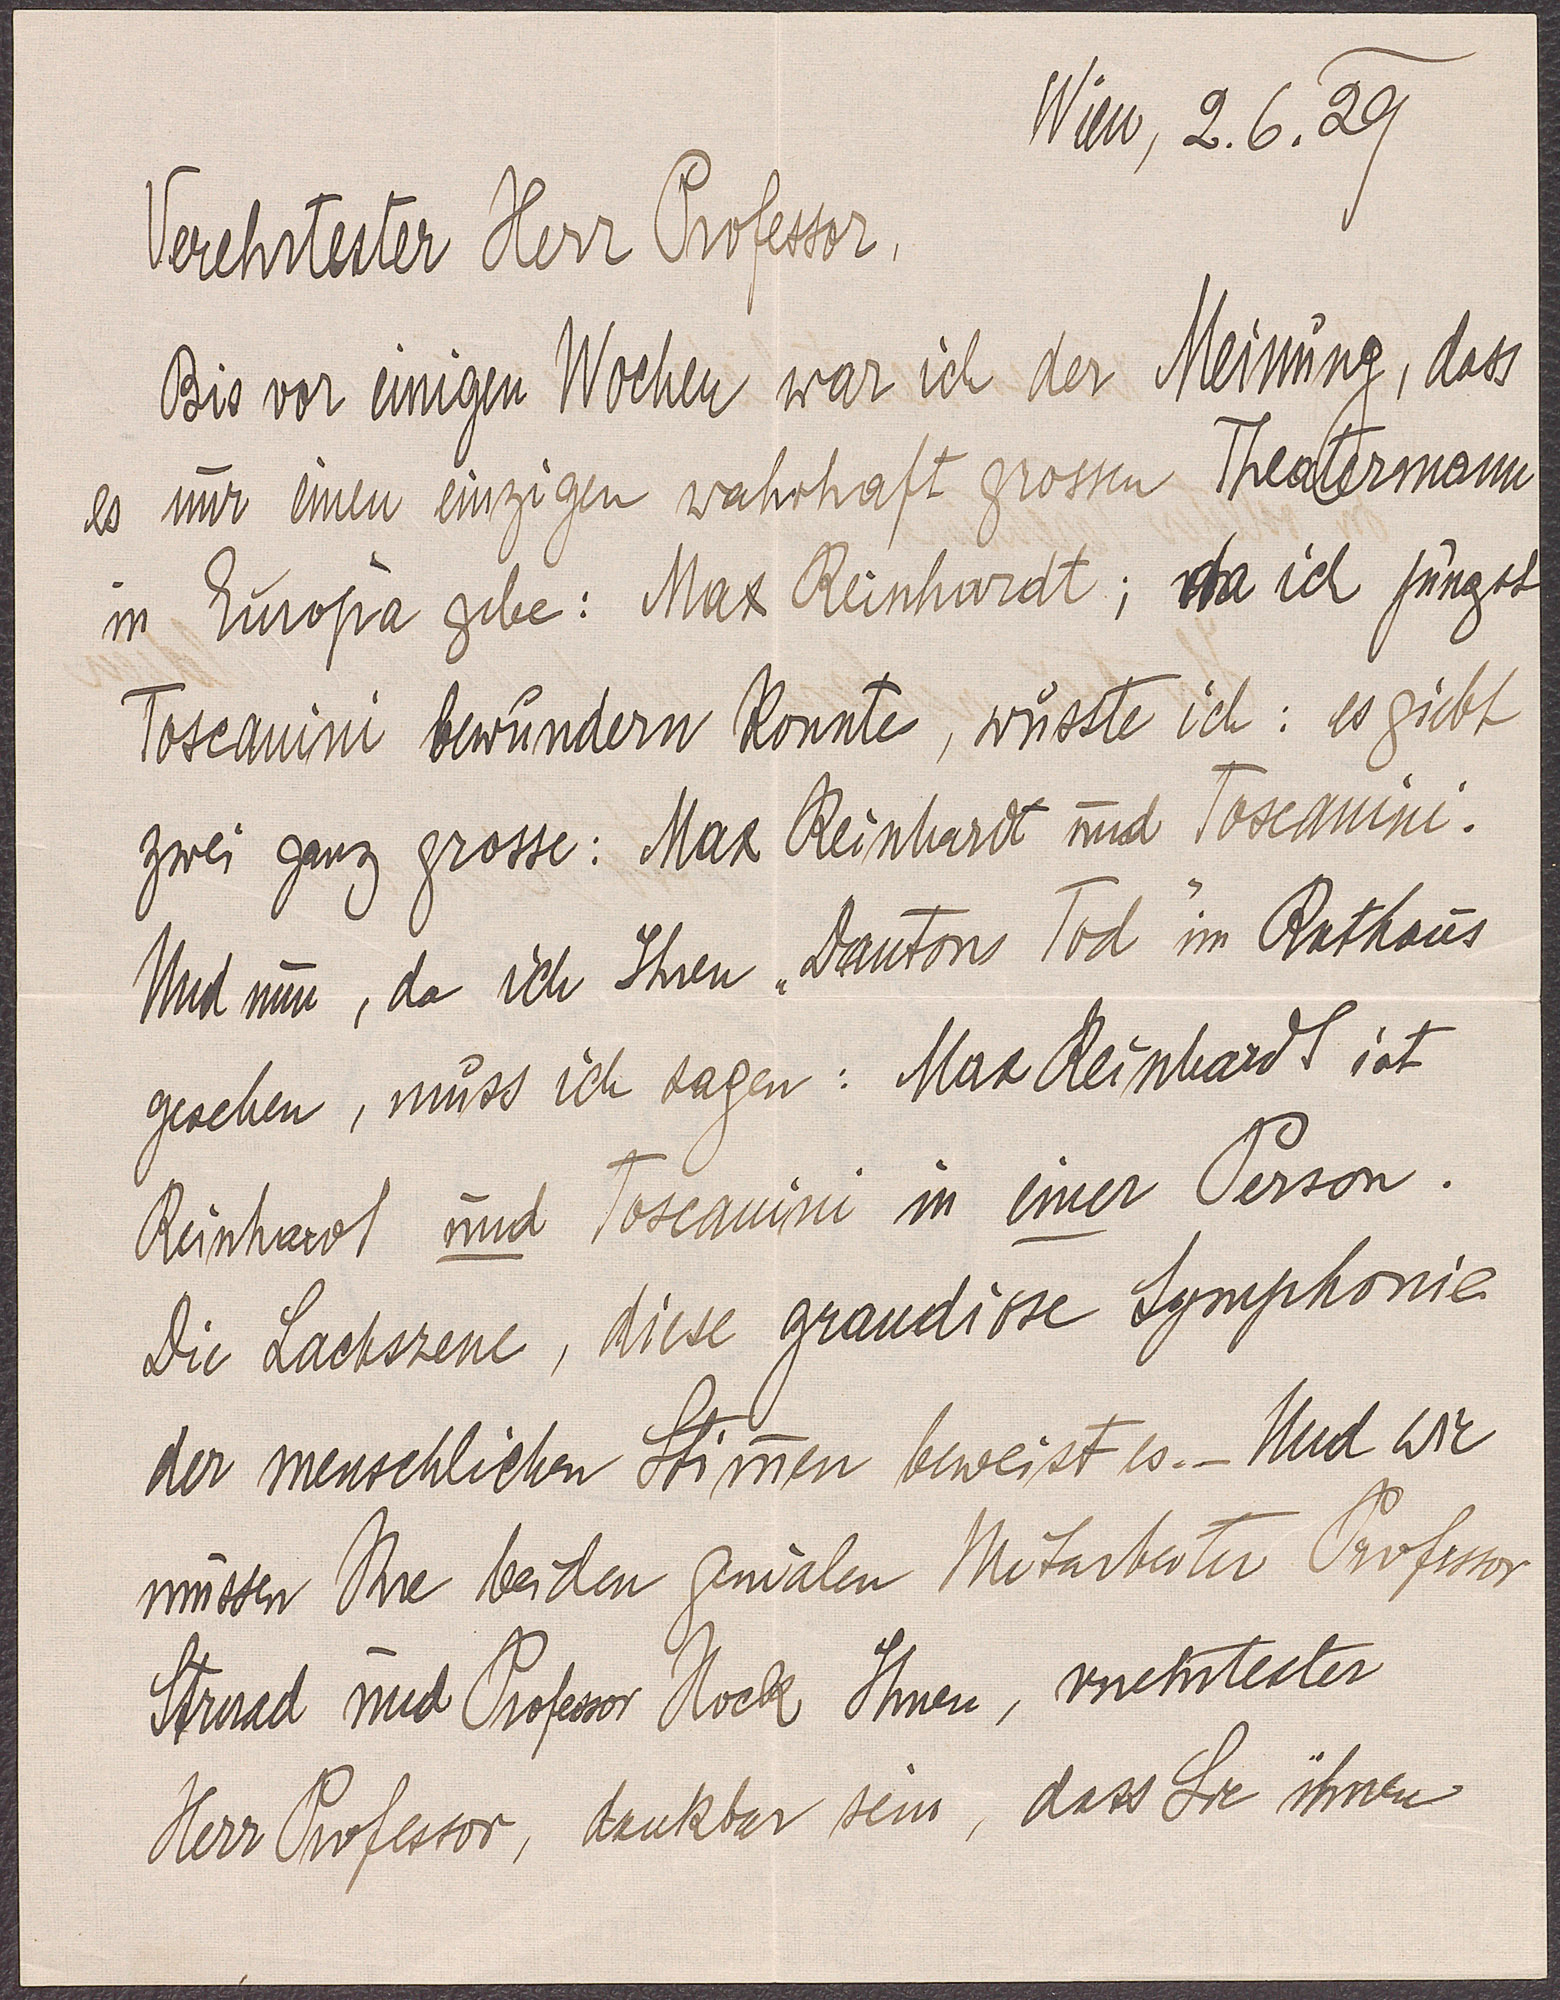 Wien, 2.6.29
Verehrtester Herr Professor,
Bis vor einigen Wochen war ich der Meinung, dass
es nur einen einzigen wahrhaft grossen Theatermann
in Europa gebe: Max Reinhardt; da ich jüngst
Toscanini bewundern konnte, wusste ich: es giebt
zwei ganz grosse: Max Reinhardt und Toscanini.
Und nun, da ich Ihren „Dantons Tod" im Rathaus
gesehen, muss ich sagen: Max Reinhardt ist
Reinhardt und Toscanini in einer Person.
Die Lachszene, diese grandiose Symphonie
der menschlichen Stim̄en beweist es. – Und wir
müssen Ihre beiden genialen Mitarbeiter Professor
Strnad und Professor Hock Ihnen, verehrtester
Herr Professor, dankbar sein, dass Sie ihnen